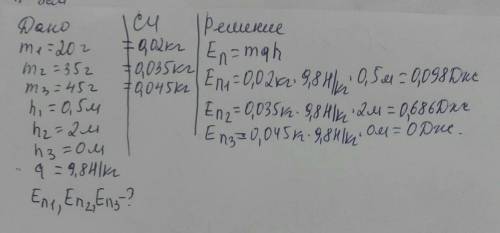 Дано
m1 = 20 г
m2 = 35 г
m3 = 45 г
h1 = 0,5 м
h2 = 2 м
h3 = 0 м
g = 9,8 Н/кг
Eп1, Eп2, Eп3 - ?
СИ
= 0,02 кг
= 0,035 кг
= 0,045 кг
Решение
Eп = mgh
Eп1 = 0,02 кг · 9,8 Н/кг · 0,5 м = 0,098 Дж
Eп2 = 0,035 к. · 9,8 Н/кг · 2 м = 0,686 Дж
Eп3 = 0,045 кг · 9,8 Н/кг · 0 м = 0 Дж.